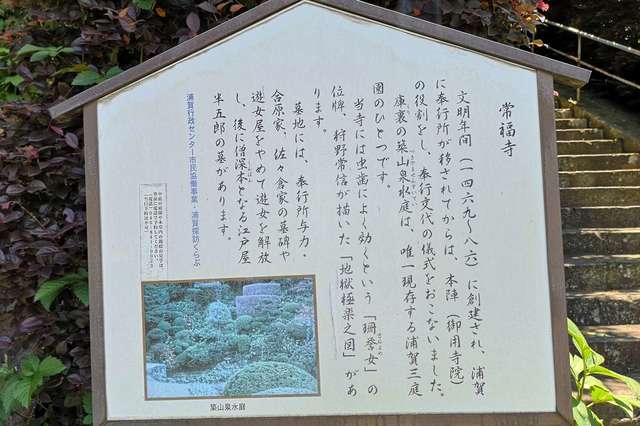 常福寺
文明年間(一四六九〜八六)に創建され、浦賀
に奉行所が移されてからは、本陣(御用寺院)
の役割をし、奉行交代の儀式をおこないました。
庫裏の築山泉水庭は、唯一現存する浦賀三庭
園のひとつです。
当寺には虫歯によく効くという「珊誉女」の
位牌、狩野常信が描いた「地獄極楽之図」があ
ります。
墓地には、奉行所与力・
合原家、佐々倉家の墓碑や
遊女屋をやめて遊女を解放
し、後に僧深本となる江戸屋
半五郎の墓があります。
浦賀行政センター市民協働事業・浦賀探訪くらぶ
築山泉水庭